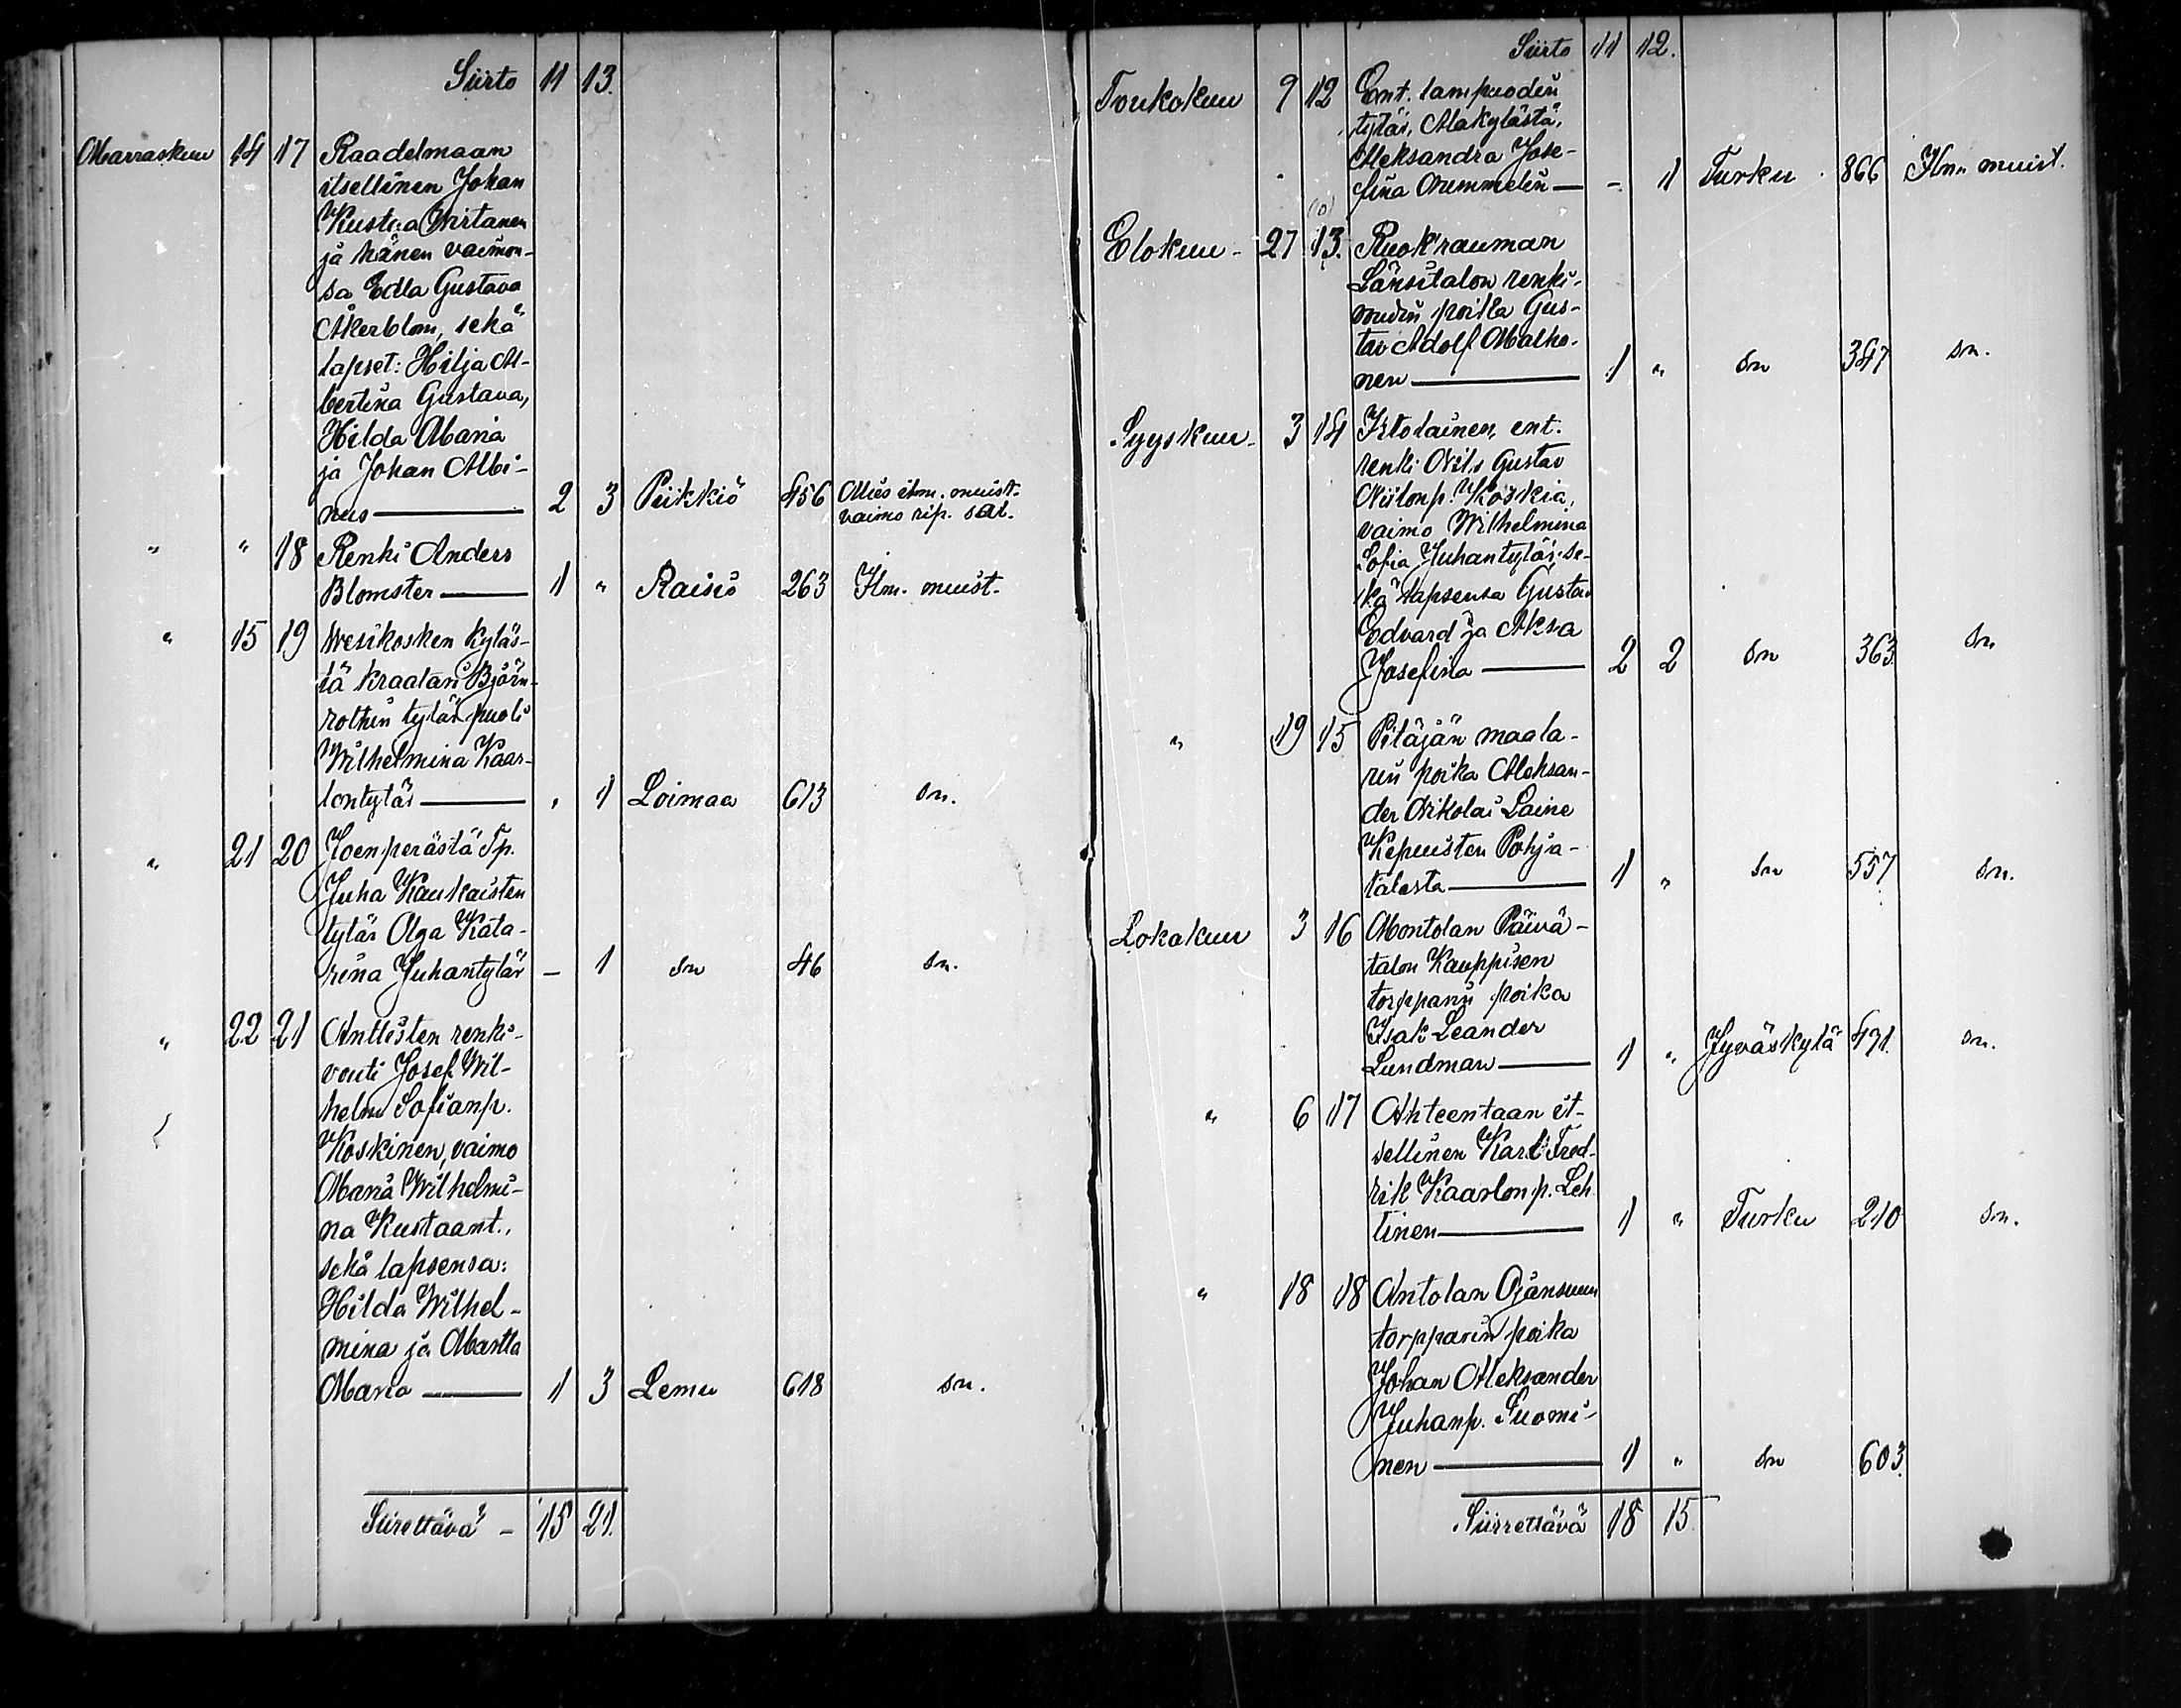 Siirto 11 13.
Marraskuu 14 17 Raadelmaan
itsellinen Johan
Kustaa Virtanen
ja hänen vaimon-
sa Edla Gustava
Åkerblom, sekä
lapset: Hilja Al-
bertina Gustava,
Hilda Maria
ja Johan Albi-
nus — 2 3 Piikkiö 456 Mies ilm. muist.
vaimo rip. sal.
" " 18 Renki Anders
Blomster — 1 " Raisio 263 Ilm. muist.
" 15 19 Wesikosken kyläs-
tä kraatari Björn-
rothin tytär puoli
Wilhelmina Kaar-
lontytär — " 1 Loimaa 613 sn.
" 21 20 Joenperästä Tp.
Juha Kaukaisten
tytär Olga Kata-
rina Juhantytär — 1 sn 46 sn.
" 22 21 Anttisten renki-
vouti Josef Wil-
helm Sofianp.
Koskinen, vaimo
Maria Wilhelmi-
na Kustaant.,
sekä lapsensa:
Hilda Wilhel-
mina ja Martta
Maria — 1 3 Lemu 618 sn.
Siirettävä - 15 21.
Siirto 11 12.
Toukokuu 9 12 Ent. lampuodin
tytär, Alakylästä,
Aleksandra Jose-
fina Grummelin — - 1 Turku 866 Ilm. muist.
Elokuu - 27 13. Ruokrauman
Länsitalon renki-
voudin poika Gus-
tav Adolf Malho-
nen — 1 " sn 347 sn.
Syyskuu - 3 14 Irtolainen, ent.
renki Nils Gustav
Niilonp. Koskia,
vaimo Wilhelmina
Sofia Juhantytär se-
kä lapsensa Gustav
Edvard ja Aksa
Josefina — 2 2 sn 363. sn
" 19 15 Pitäjän maala-
rin poika Aleksan-
der Nikolai Laine
Kepuisten Pohja-
talosta — 1 " sn 557 sn.
Lokakuu 3 16 Montolan Päivä-
talon Kauppisen
torpparin poika
Isak Leander
Lundman — 1 " Jyväskylä 471. sn.
" 6 17 Ahteentaan it-
sellinen Karl Fred-
rik Kaarlonp. Leh
tinen — 1 " Turku 210 sn.
" 18 18 Antolan Ojansuun
torpparin poika
Johan Aleksander
Juhanp. Suomi-
nen — 1 " sn 603.
Siirrettävä 18 15